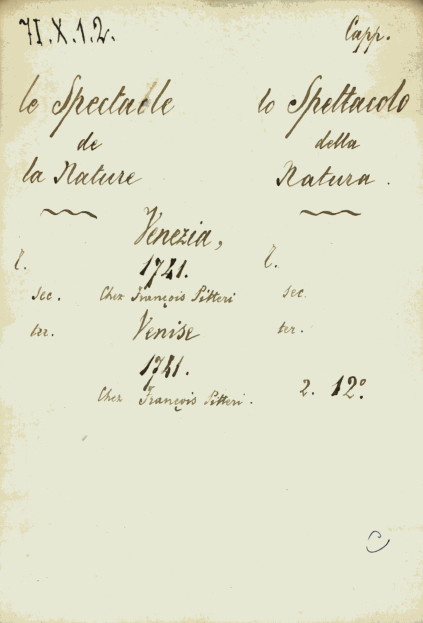 71.X.1.2. Capp.
le Spectacle lo Spettacolo
de della
la Nature Natura.
Venezia,
1741.
sec. Chez François Pitteri sec.
ter. Venise ter.
1741.
Chez François Pitteri. 2. 12°